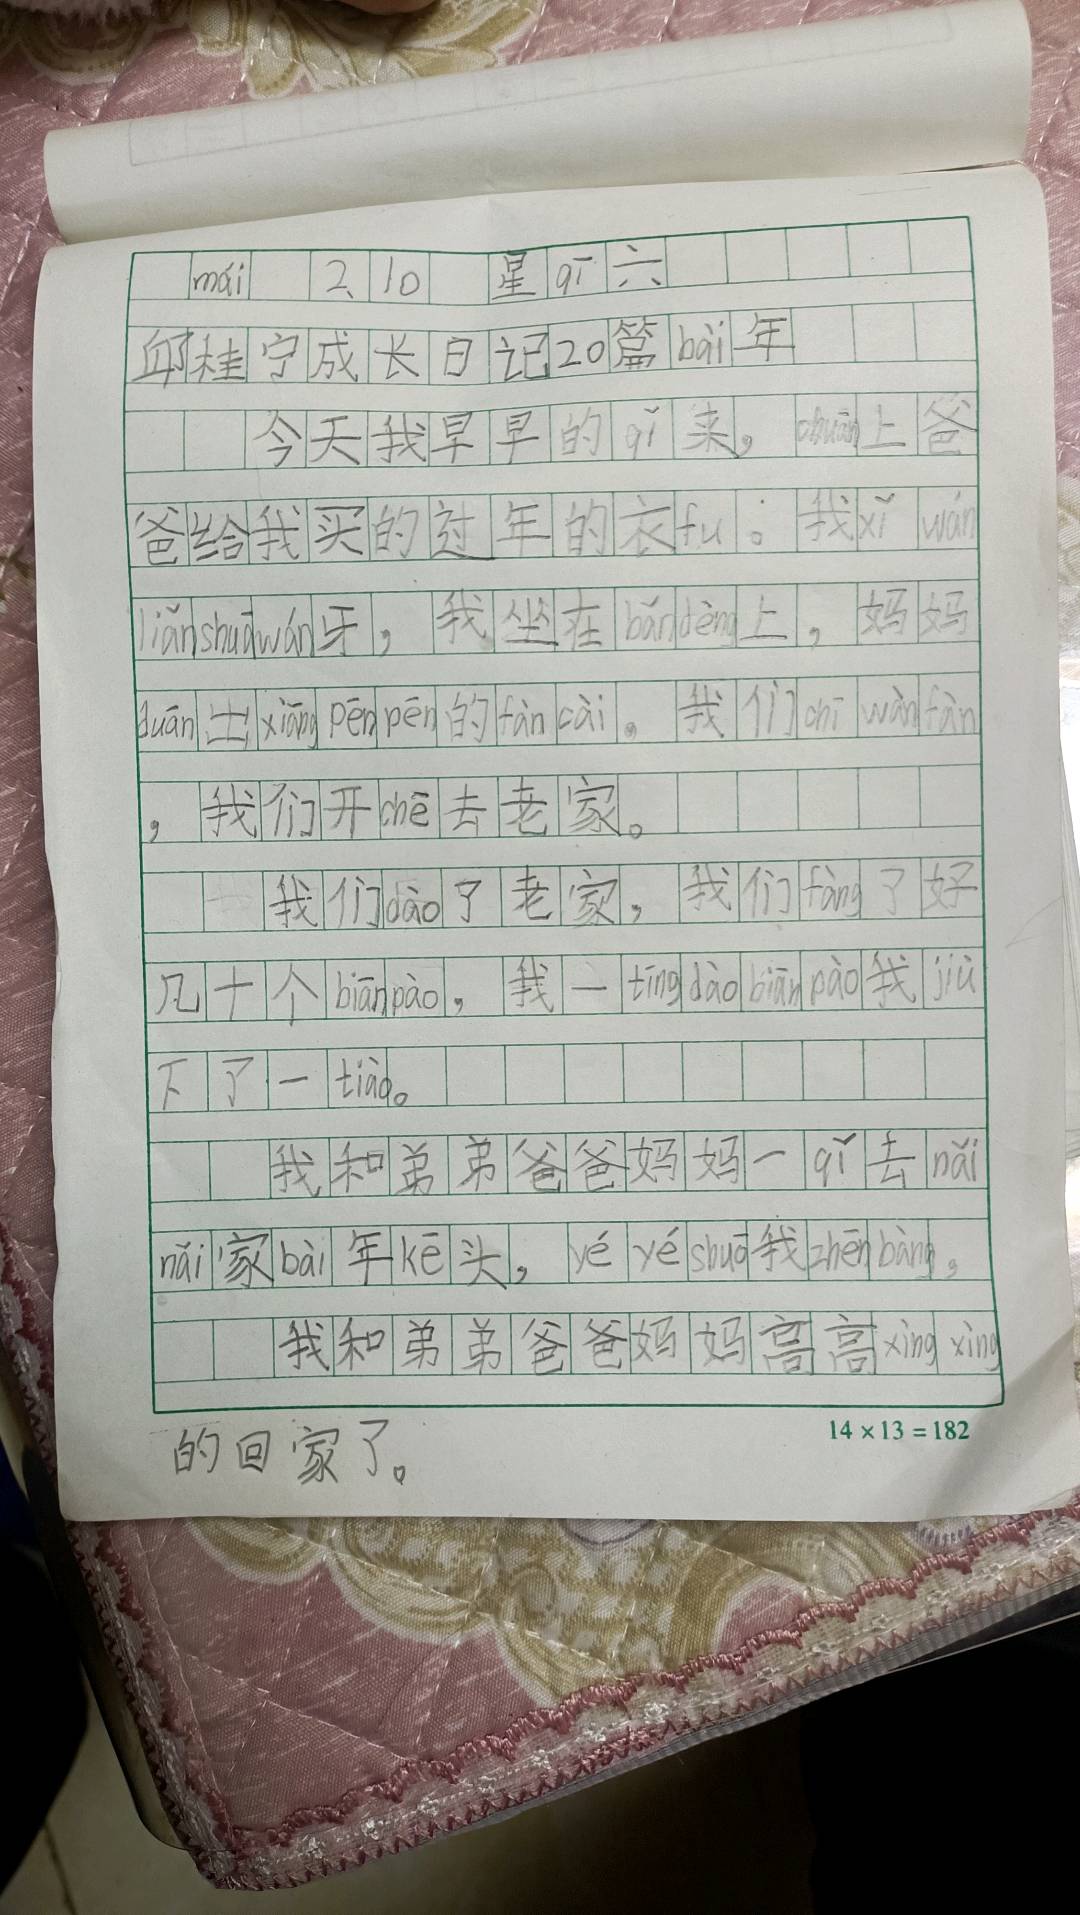 mái 2、10 星qī六
邱桂宁成长日记20篇bài年
今天我早早的qǐ来，chuān上爸
爸给我买的过年的衣fu。我xǐ wán
liǎnshuāwán牙，我坐在bǎndèng上，妈妈
duān出xiāngpēnpēn的fàncài。我们chī wànfàn
，我们开chē去老家。
我们dào了老家，我们fàng了好
几十个biānpào，我一tīngdàobiānpào我jiù
下了一tiào。
我和弟弟爸爸妈妈一qǐ去nǎi
nǎi家bài年kē头，yé yé shuō我zhēnbàng。
我和弟弟爸爸妈妈高高xìng xìng
14×13=182
的回家了。